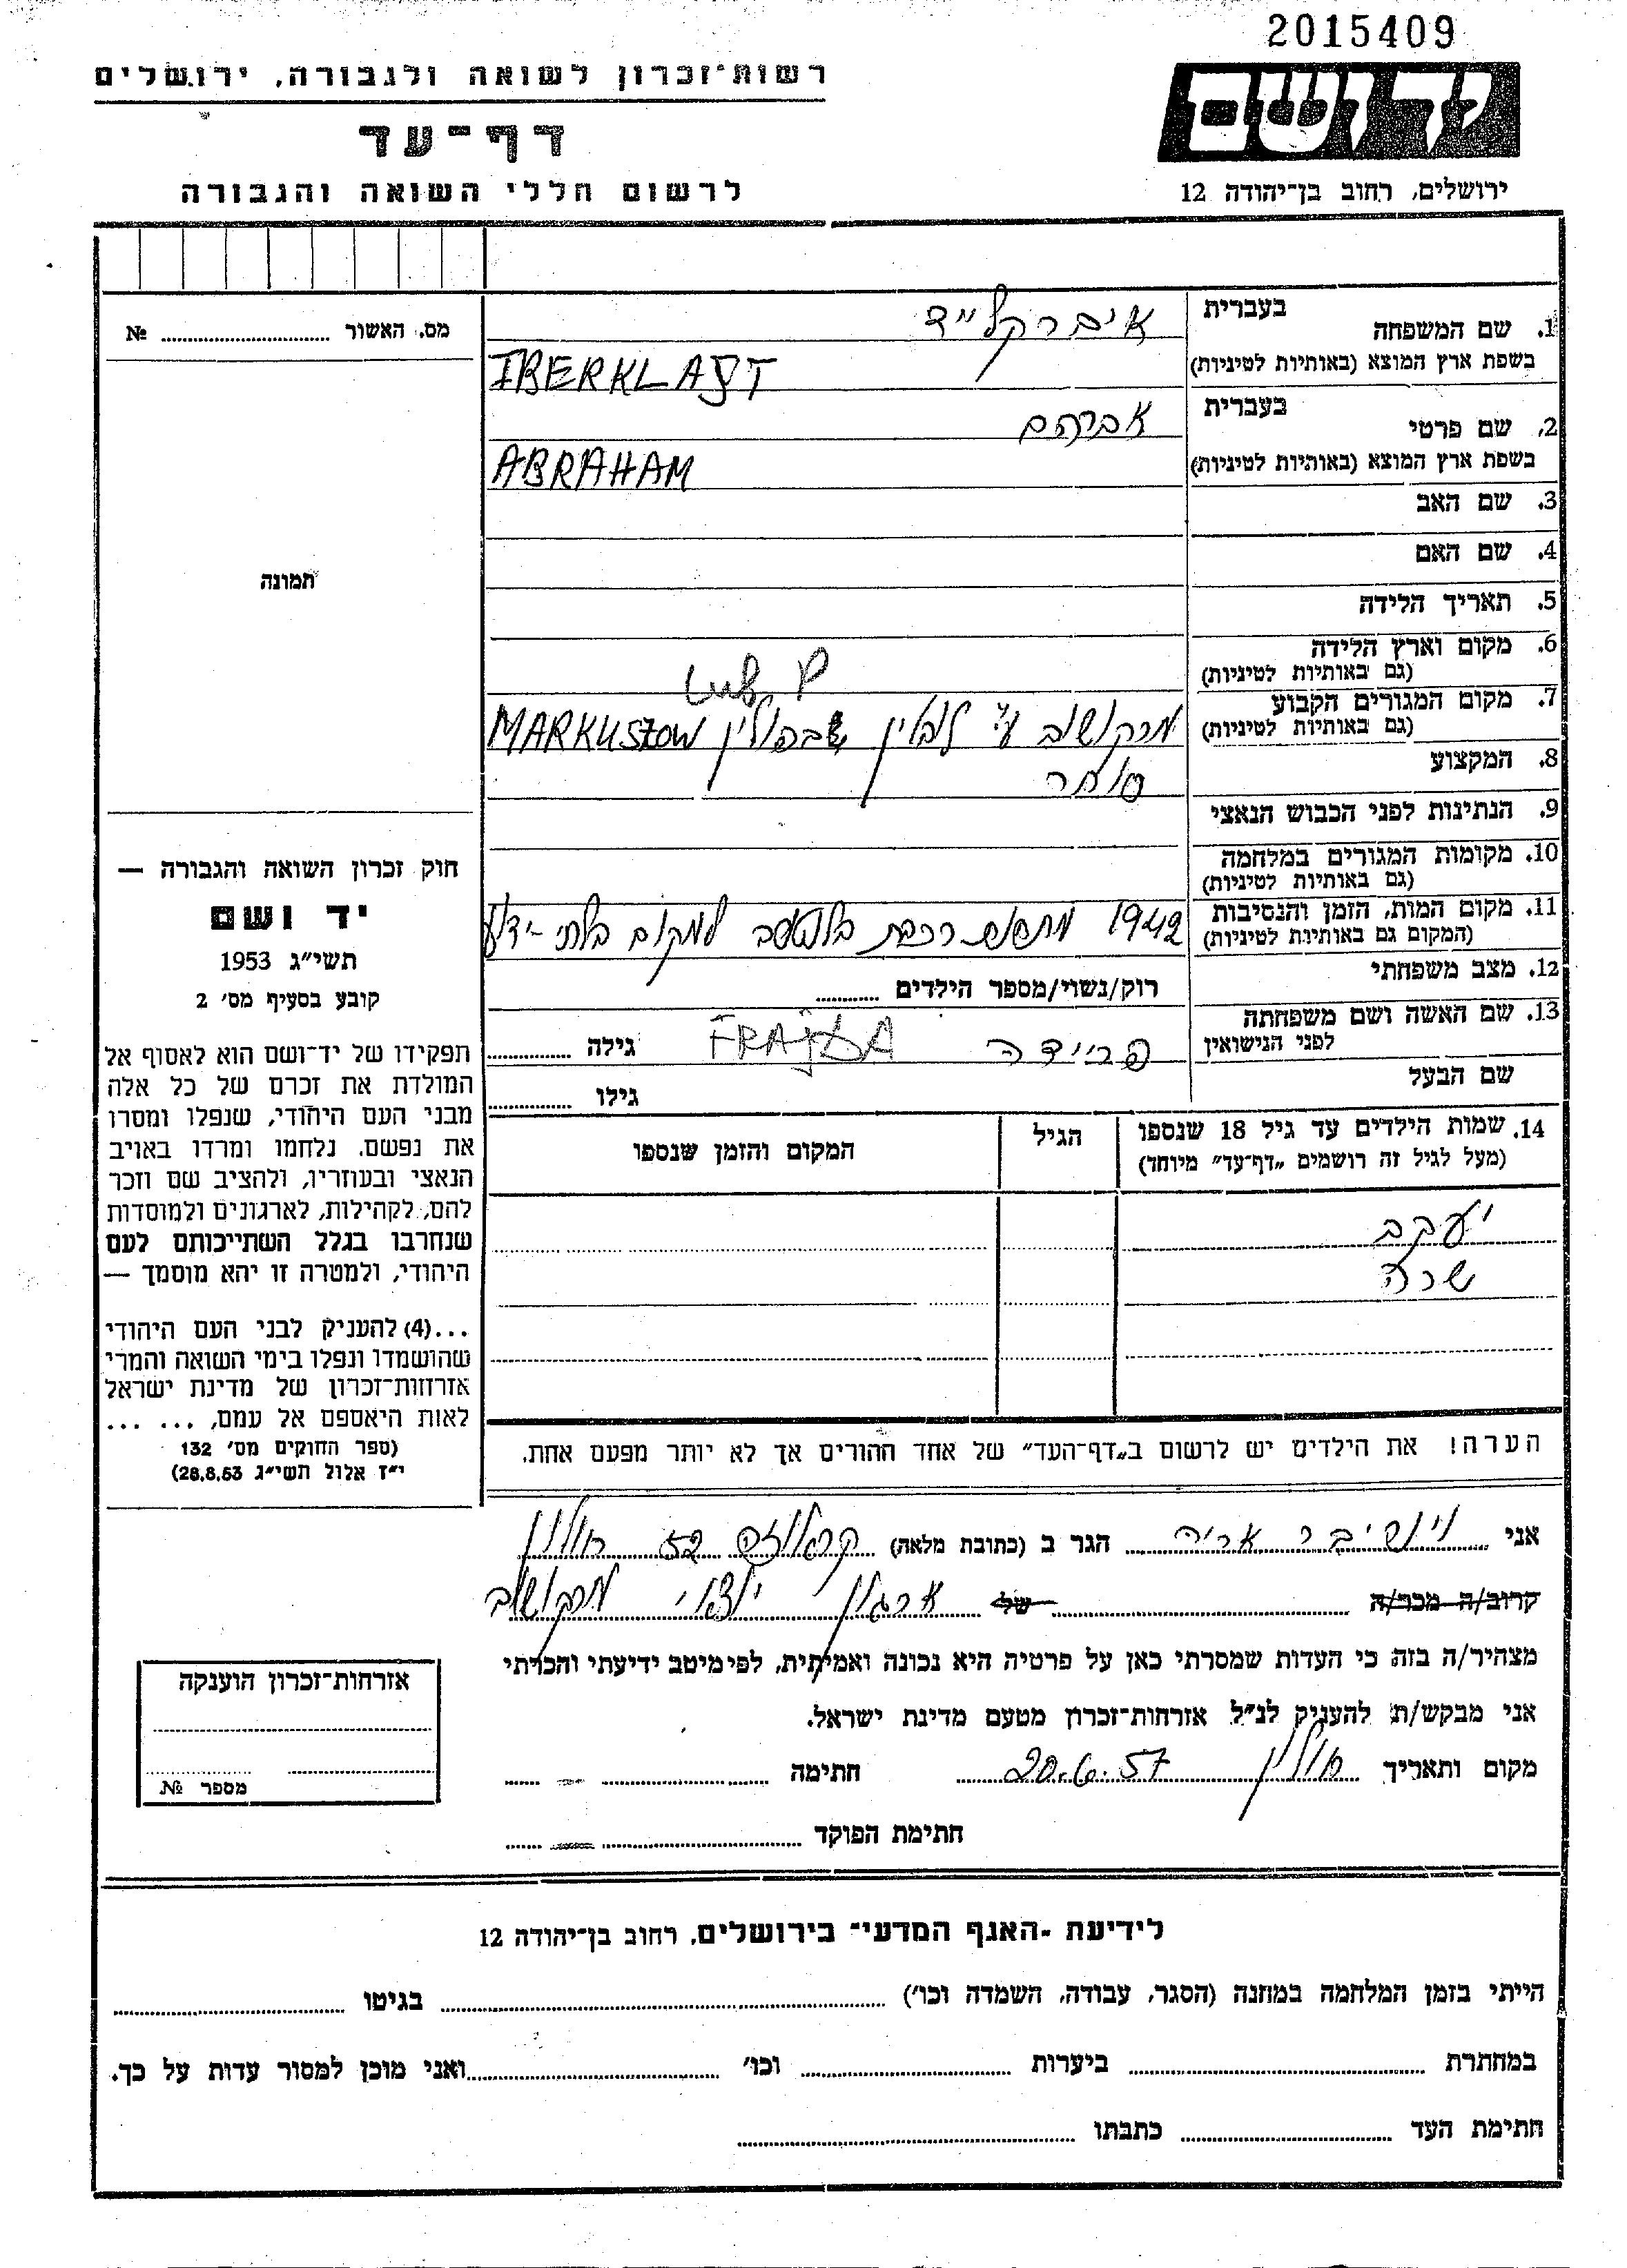 2015409
רשות־זכרון לשואה ולגבורה, ירושלים
דף־עד
לרשום חללי השואה והגבורה
יד ושם
ירושלים, רחוב בן־יהודה 12
מס. האשור № 
תמונה
1. שם המשפחה בעברית
בשפת ארץ המוצא (באותיות לטיניות) IBERKLAJT
2. שם פרטי בעברית אברהם
בשפת ארץ המוצא (באותיות לטיניות) ABRAHAM
3. שם האב
4. שם האם
5. תאריך הלידה
6. מקום וארץ הלידה
(גם באותיות לטיניות)
7. מקום המגורים הקבוע מרקושוב ע"י לובלין שבפולין MARKUSZOW
(גם באותיות לטיניות)
8. המקצוע סוחר
9. הנתינות לפני הכבוש הנאצי
10. מקומות המגורים במלחמה
(גם באותיות לטיניות)
11. מקום המות, הזמן והנסיבות 1942 למקום בלתי-ידוע
(המקום גם באותיות לטיניות)
12. מצב משפחתי רוק/נשוי/מספר הילדים
13. שם האשה ושם משפחתה פריידה FRAJDA גילה
לפני הנישואין
שם הבעל גילו
14. שמות הילדים עד גיל 18 שנספו הגיל המקום והזמן שנספו
(מעל לגיל זה רושמים „דף־עד” מיוחד)
יעקב
שרה
הערה! את הילדים יש לרשום ב„דף־העד” של אחד ההורים אך לא יותר מפעם אחת.
חוק זכרון השואה והגבורה —
יד ושם
תשי״ג 1953
קובע בסעיף מס׳ 2
תפקידו של יד־ושם הוא לאסוף אל
המולדת את זכרם של כל אלה
מבני העם היהודי, שנפלו ומסרו
את נפשם. נלחמו ומרדו באויב
הנאצי ובעוזריו, ולהציב שם וזכר
להם, לקהילות, לארגונים ולמוסדות
שנחרבו בגלל השתייכותם לעם
היהודי, ולמטרה זו יהא מוסמך —
...(4) להעניק לבני העם היהודי
שהושמדו ונפלו בימי השואה והמרי
אזרחות־זכרון של מדינת ישראל
לאות היאספם אל עמם, ... ...
(ספר החוקים מס׳ 132
י״ז אלול תשי״ג 28.8.53)
אני וינשיבר אריה הגר ב (כתובת מלאה) 52 חולון
קרוב/ה מכר/ה של ארגון יוצאי מרקושוב
מצהיר/ה בזה כי העדות שמסרתי כאן על פרטיה היא נכונה ואמיתית, לפי מיטב ידיעתי והכרתי
אני מבקש/ת להעניק לנ״ל אזרחות־זכרון מטעם מדינת ישראל.
מקום ותאריך חולון 20.6.57 חתימה
חתימת הפוקד
אזרחות־זכרון הוענקה
מספר №
לידיעת ־האגף המדעי־ בירושלים, רחוב בן־יהודה 12
הייתי בזמן המלחמה במחנה (הסגר, עבודה, השמדה וכו׳) בגיטו
במחתרת ביערות וכו׳ ואני מוכן למסור עדות על כך.
חתימת העד כתבתו